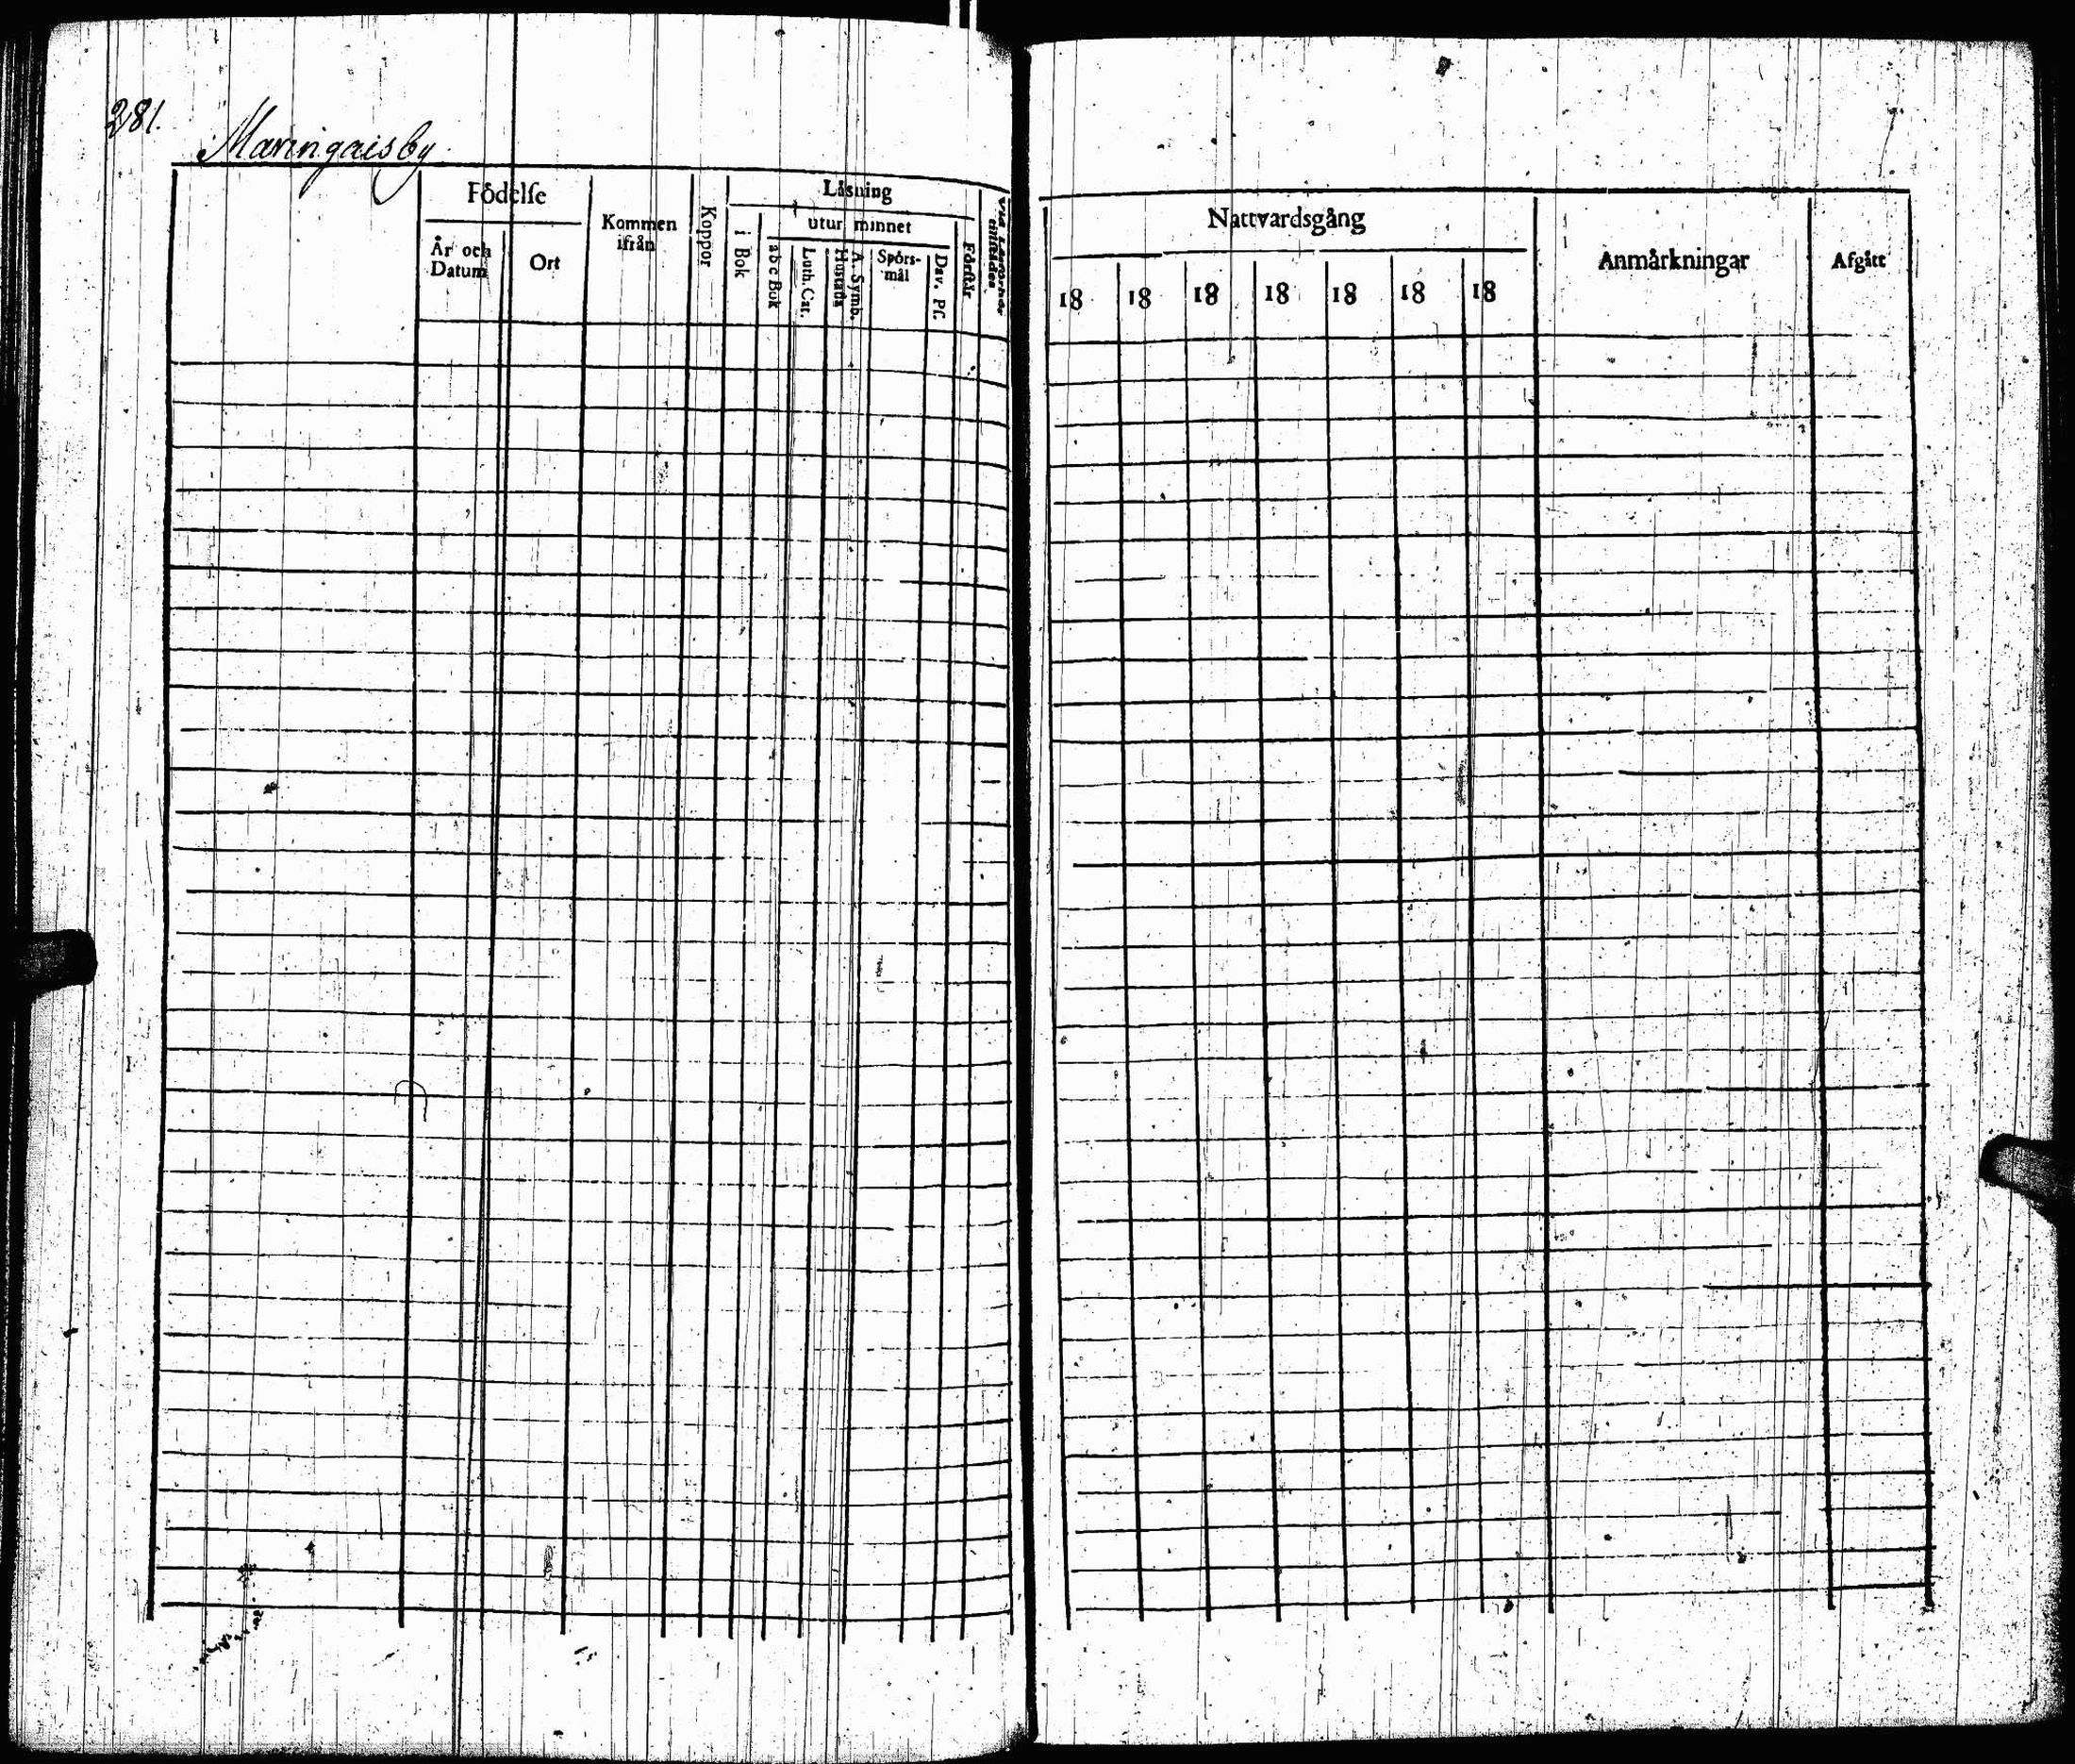 281.
Maningaisby
Födelse
År och
Datum
Ort
Kommen
ifrån
Koppor
Läsning
i Bok
utur minnet
a b c Bok
Luth. Cat.
A. Symb.
Hustafla
Spörs-
mål
Dav. Pf.
Förstår
Vid Läseförhör
tillstädes
Nattvardsgång
18 18 18 18 18 18 18
Anmårkningar
Afgått